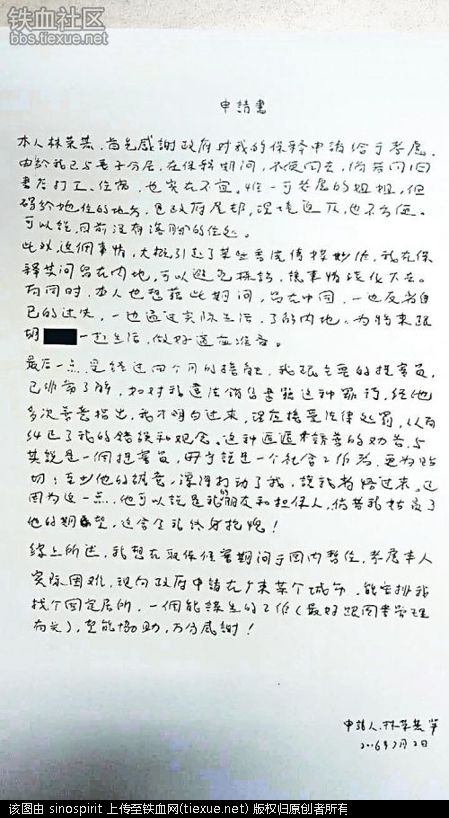 铁血社区
bbs.tiexue.net
申請書
本人林荣基，首先感謝政府对我的保釋申請给于考慮，
由於我已与妻子分居，在保釋期间，不便回去，倘若问旧
書店打工、住宿，也实在不宜，唯一可考慮的姐姐，但
碍於她住的地方，是政府屋邨，環境逼仄，也不方便。
可以説，目前没有落脚的住処。
此外，這個事情，大概引起了某些香港傳媒妙作，我在保
釋其间留在内地，可以避免採訪，讓事情淡化下去。
在同时，本人也想藉此期间，留在中国，一边反省自
己的过失，一边通过实际生活，了解内地。为将来跟
胡 一起生活，做好適应准备。
最后一点，是经过四个月的接触，我跟主要的提審員，
已非常了解，如对我違法销售書籍这种罪行，经他
多次善意指出，我才明白过来，理应接受法律処罰，以及
纠正了我的错误和观念。这种循循善誘的劝告，与
其説是一個提審員，毋宁説是一个社会工作者，更为贴
切；至少他的誠意，深深打动了我，讓我省悟过来。也
因为这一点，他可以説是我的朋友和担保人，倘若我辜負了
他的期望，这会令我终身抱愧！
综上所述，我想在取保候審期间于国内暂住，考慮本人
实际困难，现向政府申請在广東某个城市，能安排我
找个固定居所，一個能维生的工作（最好跟図書管理
有关），望能協助，万分感謝！
申請人：林荣基 筆
2016年2月2日
该图由 sinospirit 上传至铁血网(tiexue.net) 版权归原创者所有